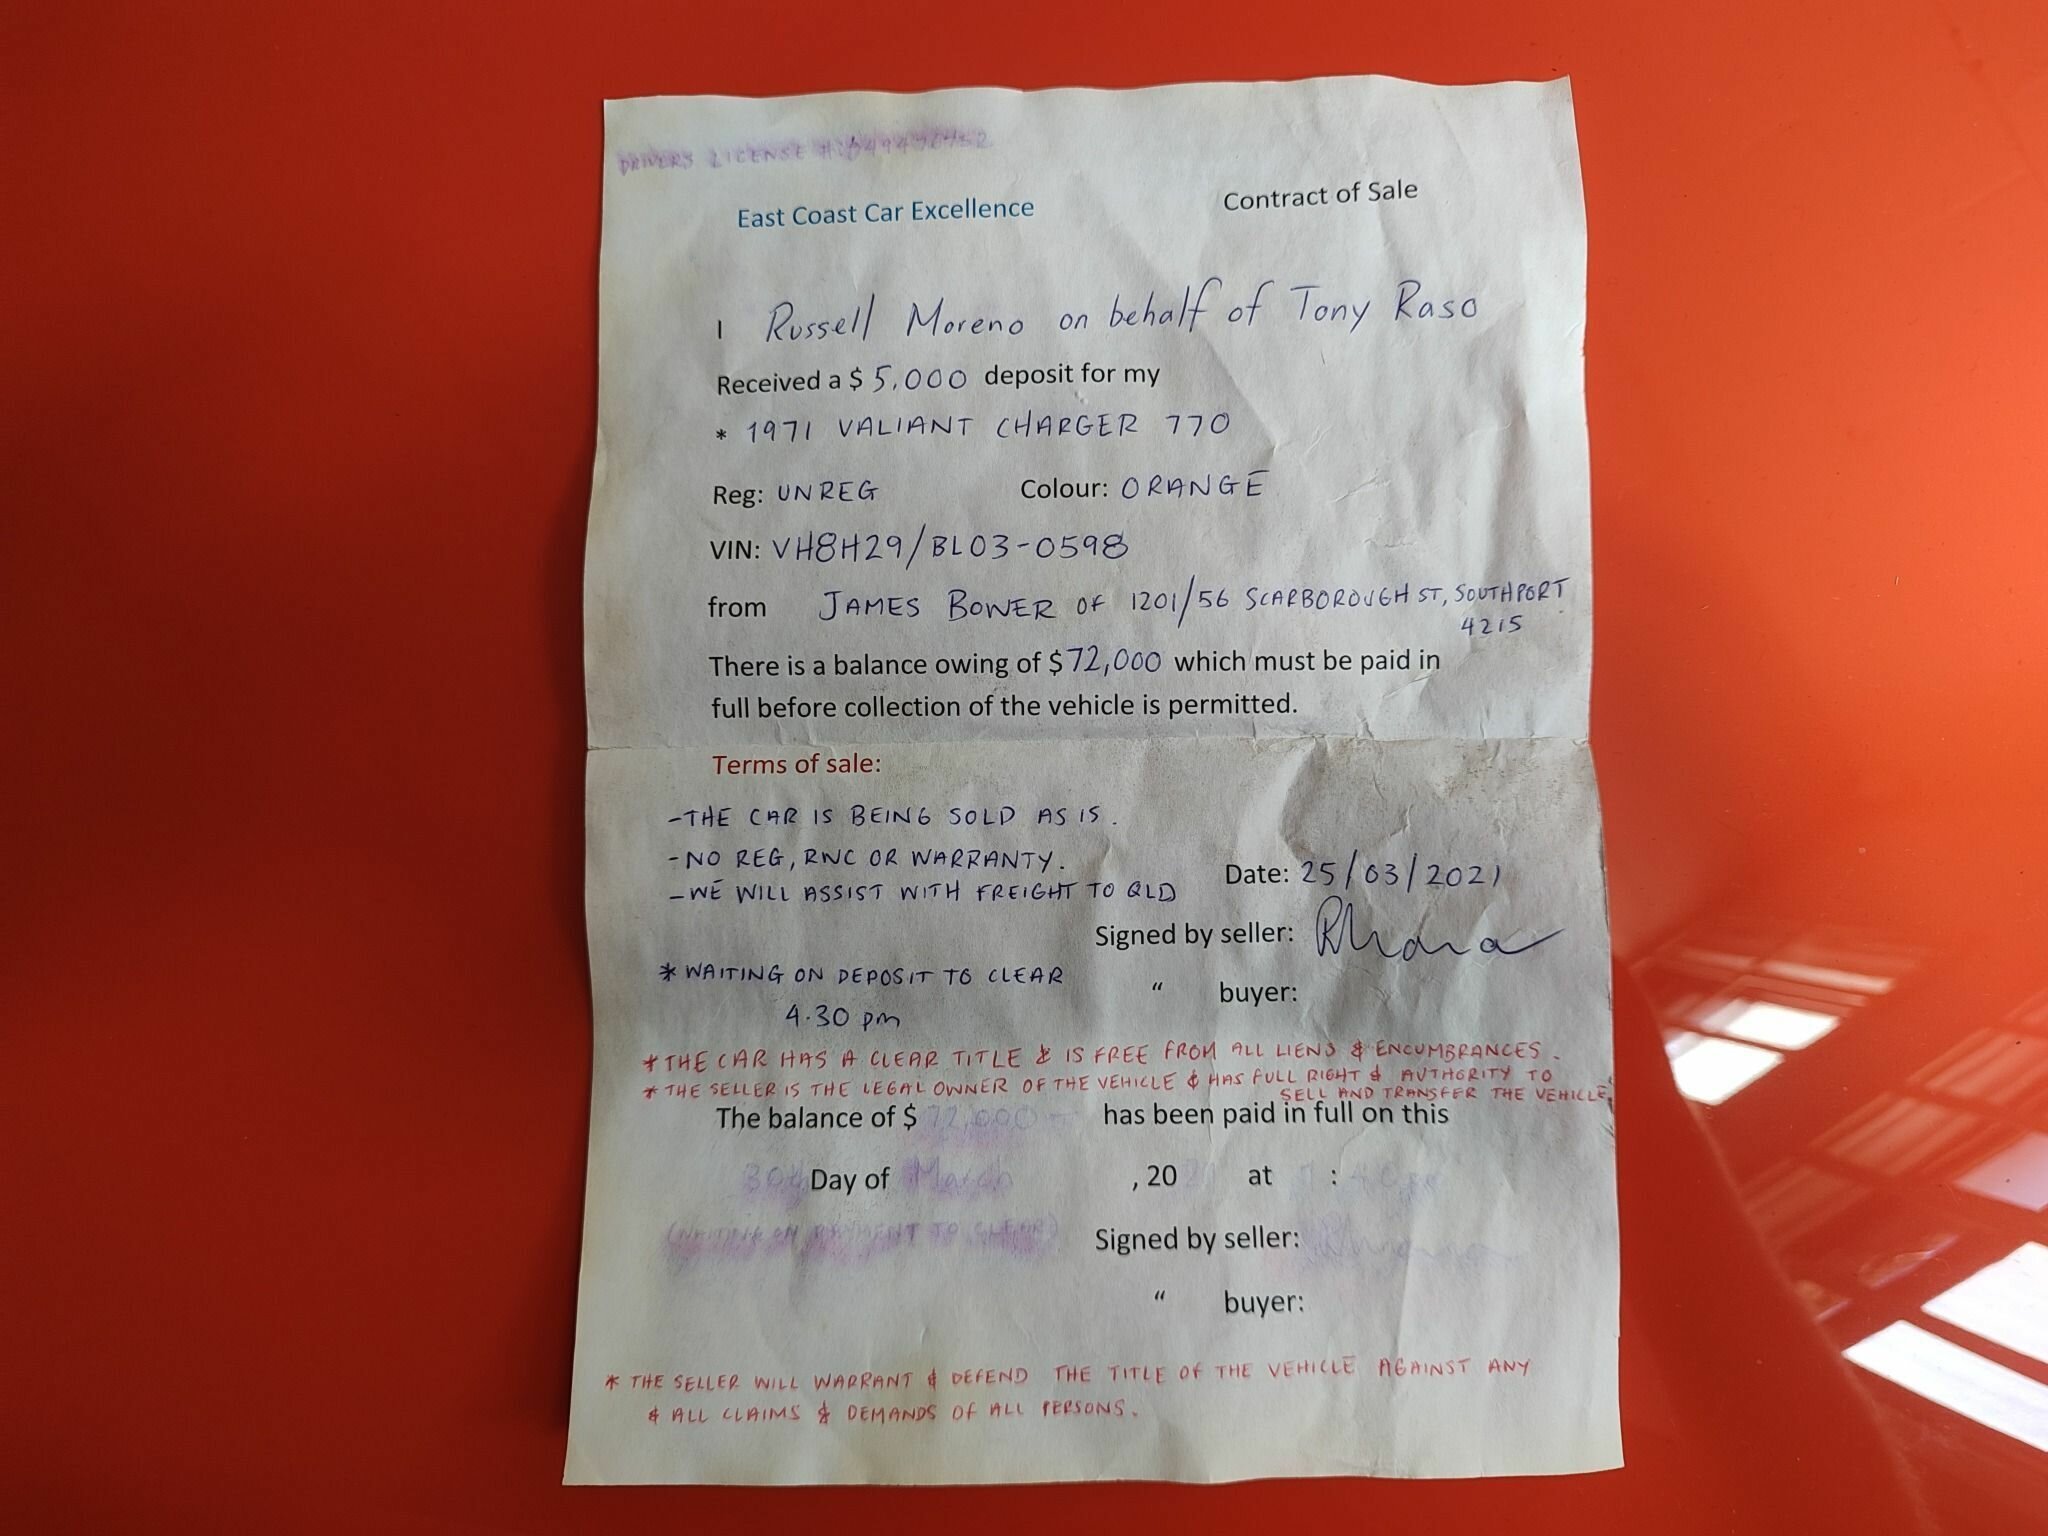 DRIVERS LICENSE #:
East Coast Car Excellence Contract of Sale
I Russell Moreno on behalf of Tony Raso
Received a $ 5,000 deposit for my
* 1971 VALIANT CHARGER 770
Reg: UNREG Colour: ORANGE
VIN: VH8H29/BL03-0598
from JAMES BOWER OF 1201/56 SCARBOROUGH ST, SOUTHPORT
4215
There is a balance owing of $72,000 which must be paid in
full before collection of the vehicle is permitted.
Terms of sale:
-THE CAR IS BEING SOLD AS IS.
-NO REG, RWC OR WARRANTY.
-WE WILL ASSIST WITH FREIGHT TO QLD
Date: 25/03/2021
Signed by seller:
* WAITING ON DEPOSIT TO CLEAR
4.30 pm
" buyer:
* THE CAR HAS A CLEAR TITLE & IS FREE FROM ALL LIENS & ENCUMBRANCES.
* THE SELLER IS THE LEGAL OWNER OF THE VEHICLE & HAS FULL RIGHT & AUTHORITY TO
SELL AND TRANSFER THE VEHICLE.
The balance of $ 72,000 has been paid in full on this
30th Day of March , 20 at :
(WAITING ON PAYMENT TO CLEAR)
Signed by seller:
" buyer:
* THE SELLER WILL WARRANT & DEFEND THE TITLE OF THE VEHICLE AGAINST ANY
& ALL CLAIMS & DEMANDS OF ALL PERSONS.